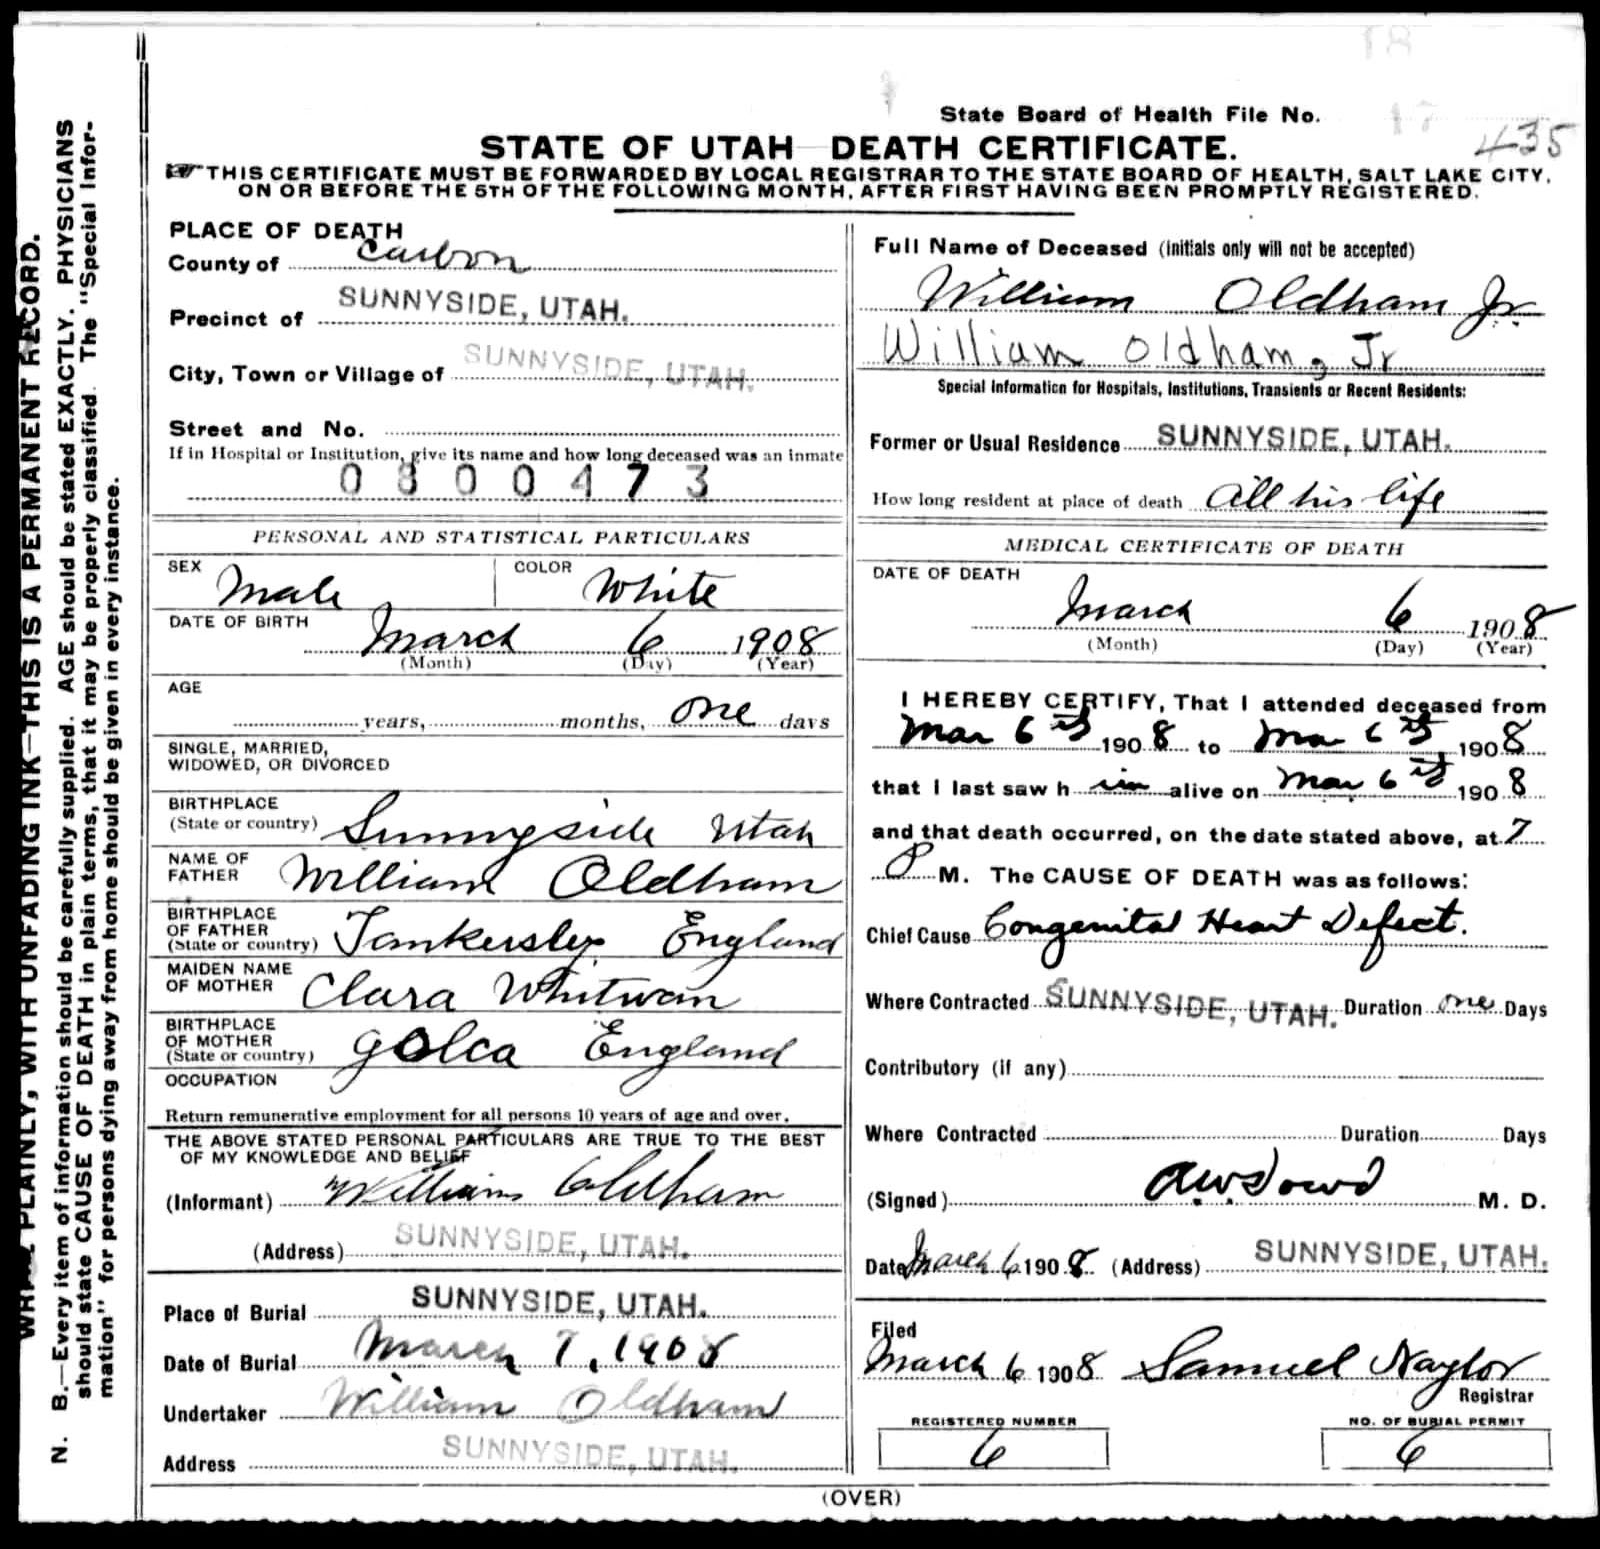 18
State Board of Health File No. 17 435
STATE OF UTAH DEATH CERTIFICATE.
THIS CERTIFICATE MUST BE FORWARDED BY LOCAL REGISTRAR TO THE STATE BOARD OF HEALTH, SALT LAKE CITY,
ON OR BEFORE THE 5TH OF THE FOLLOWING MONTH, AFTER FIRST HAVING BEEN PROMPTLY REGISTERED.
PLACE OF DEATH
County of Carbon
Precinct of SUNNYSIDE, UTAH.
City, Town or Village of SUNNYSIDE, UTAH.
Street and No.
If in Hospital or Institution, give its name and how long deceased was an inmate
0800473
PERSONAL AND STATISTICAL PARTICULARS
SEX Male COLOR White
DATE OF BIRTH
March 6 1908
(Month) (Day) (Year)
AGE
years, months, one days
SINGLE, MARRIED,
WIDOWED, OR DIVORCED
BIRTHPLACE
(State or country) Sunnyside Utah
NAME OF
FATHER William Oldham
BIRTHPLACE
OF FATHER
(State or country) Tankersley England
MAIDEN NAME
OF MOTHER Clara Whitwam
BIRTHPLACE
OF MOTHER
(State or country) Golca England
OCCUPATION
Return remunerative employment for all persons 10 years of age and over.
THE ABOVE STATED PERSONAL PARTICULARS ARE TRUE TO THE BEST
OF MY KNOWLEDGE AND BELIEF
(Informant) William Oldham
(Address) SUNNYSIDE, UTAH.
Place of Burial SUNNYSIDE, UTAH.
Date of Burial March 7, 1908
Undertaker William Oldham
Address SUNNYSIDE, UTAH.
Full Name of Deceased (Initials only will not be accepted)
William Oldham Jr.
William Oldham, Jr
Special Information for Hospitals, Institutions, Transients or Recent Residents:
Former or Usual Residence SUNNYSIDE, UTAH.
How long resident at place of death All his life
MEDICAL CERTIFICATE OF DEATH
DATE OF DEATH
March 6 1908
(Month) (Day) (Year)
I HEREBY CERTIFY, That I attended deceased from
Mar 6th 1908 to Mar 6th, 1908
that I last saw him alive on Mar 6th 1908
and that death occurred, on the date stated above, at 7
P M. The CAUSE OF DEATH was as follows:
Chief Cause Congenital Heart Defect.
Where Contracted SUNNYSIDE, UTAH. Duration one Days
Contributory (if any)
Where Contracted Duration Days
(Signed) A.W. Dowd M. D.
Date March 6 1908 (Address) SUNNYSIDE, UTAH.
Filed
March 6 1908 Samuel Naylor
Registrar
REGISTERED NUMBER
6
NO. OF BURIAL PERMIT
6
(OVER)
WRITE PLAINLY, WITH UNFADING INK—THIS IS A PERMANENT RECORD.
N. B.—Every item of information should be carefully supplied. AGE should be stated EXACTLY. PHYSICIANS
should state CAUSE OF DEATH in plain terms, that it may be properly classified. The "Special Infor-
mation" for persons dying away from home should be given in every instance.